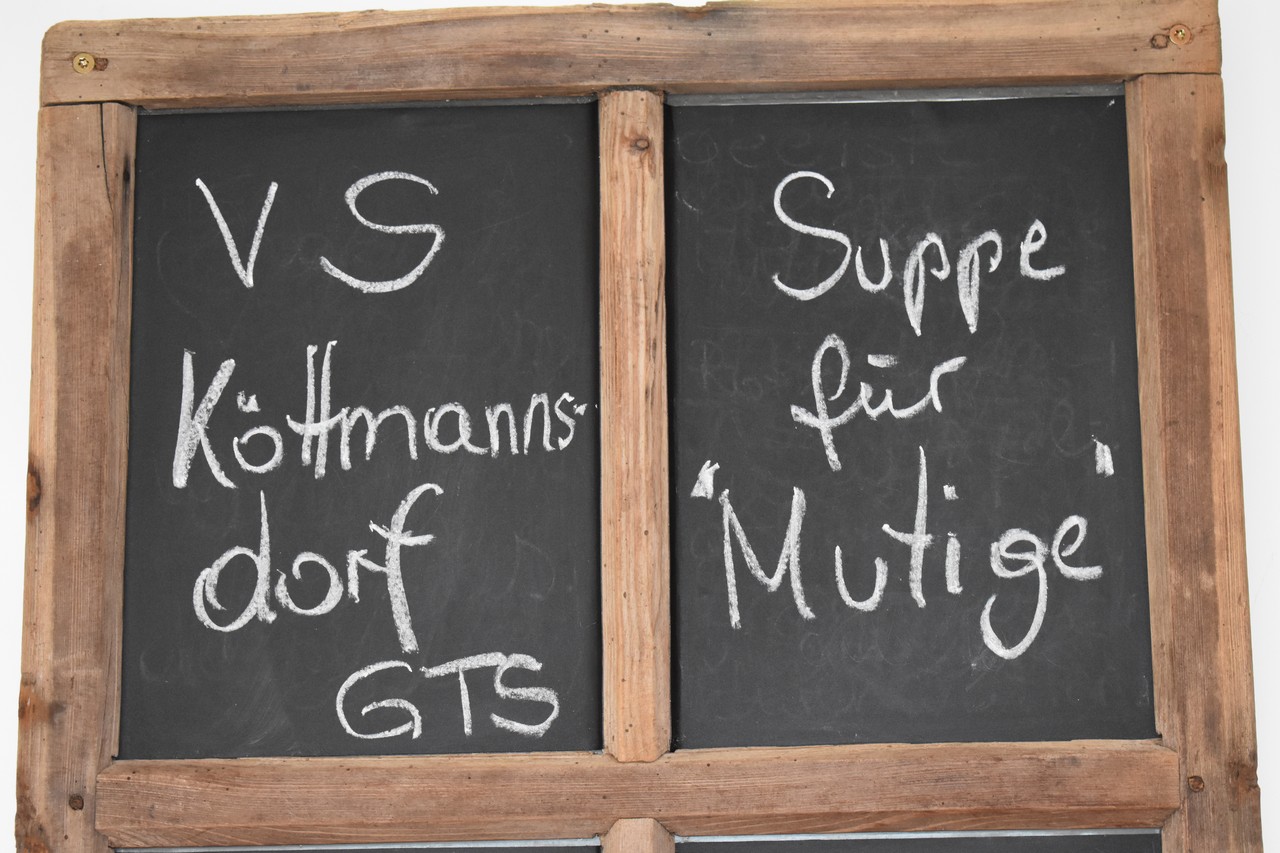 VS
Köttmanns-
dorf
GTS
Suppe
für
"Mutige"